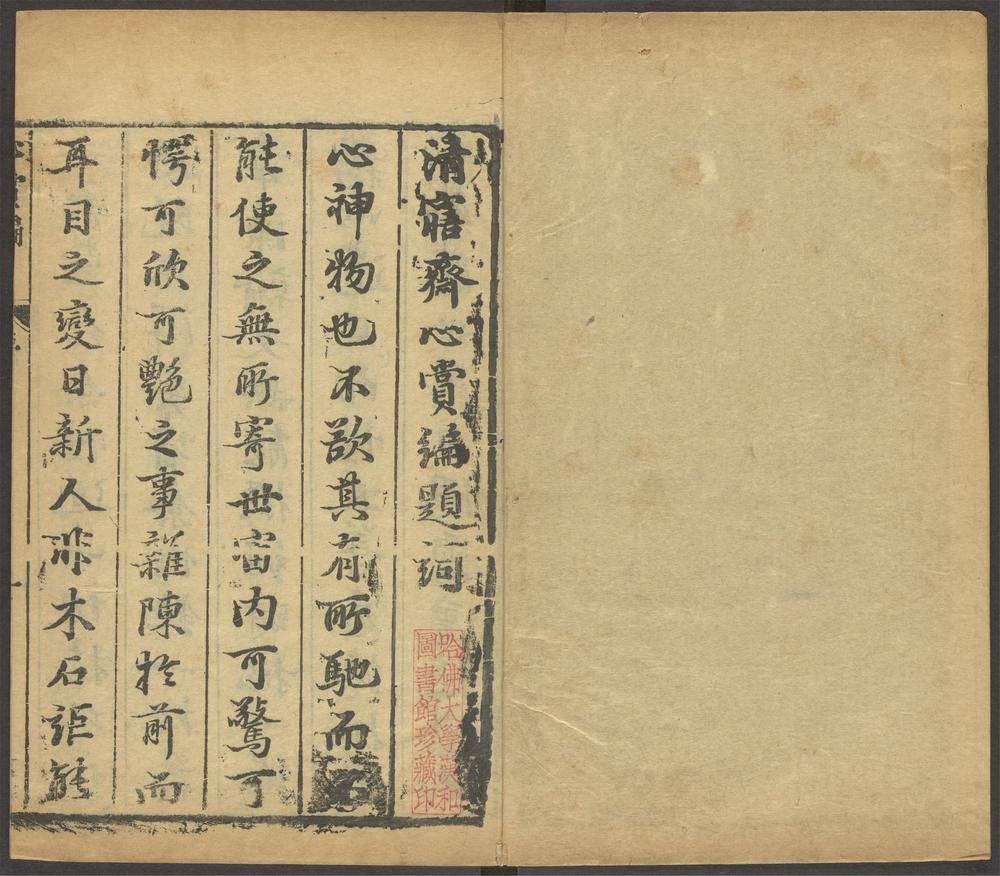 清寤齋心賞編題詞
哈佛大學漢和
圖書館珍藏印
心神物也不欲其有所馳而不
能使之無所寄世宙內可驚可
愕可欣可艷之事雜陳於前而
耳目之變日新人非木石詎能
心賞編